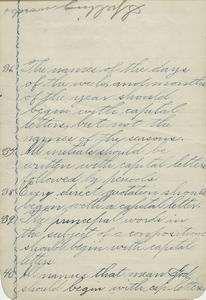 36. The names of the days
of the week and months
of the year should
begin with capital
letters, but not the
names of the seasons.
37. All initials should be
written with capital letters
followed by periods.
38. Every direct quotation should
begin with a capital letter.
39. The principal words in
the subject of a composition
should begin with capital
letters.
40. All names that mean God
should begin with capital letters.